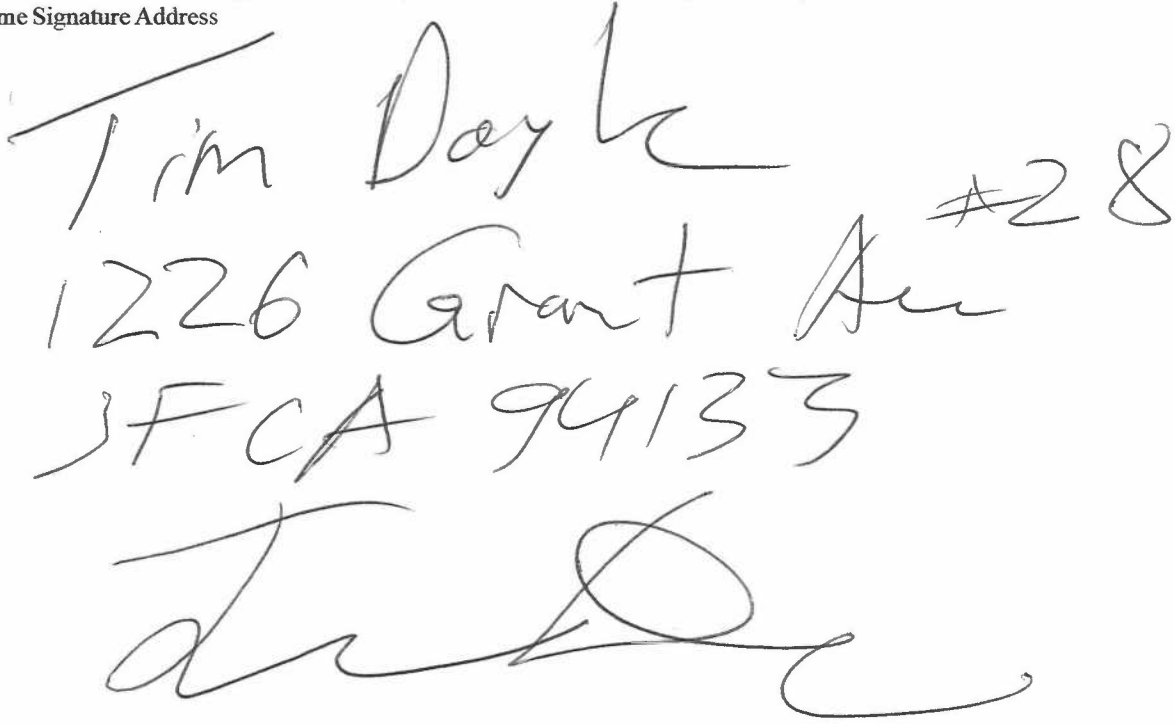 me Signature Address
Tim Doyle
1226 Grant Ave #28
SF CA 94133